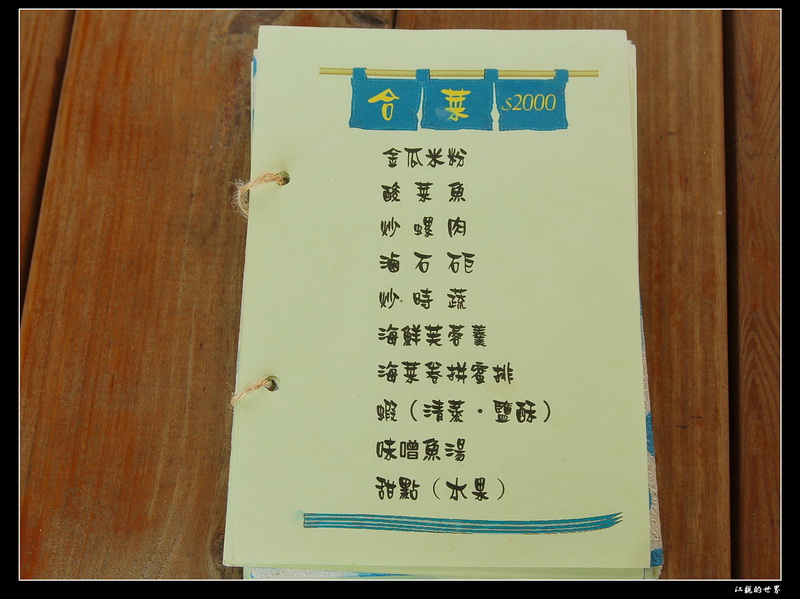 合菜 $2000
金瓜米粉
酸菜魚
炒螺肉
滷石砳
炒時蔬
海鮮芙蓉羹
海菜卷拼蜜排
蝦（清蒸·鹽酥）
味噌魚湯
甜點（水果）
江銘的世界